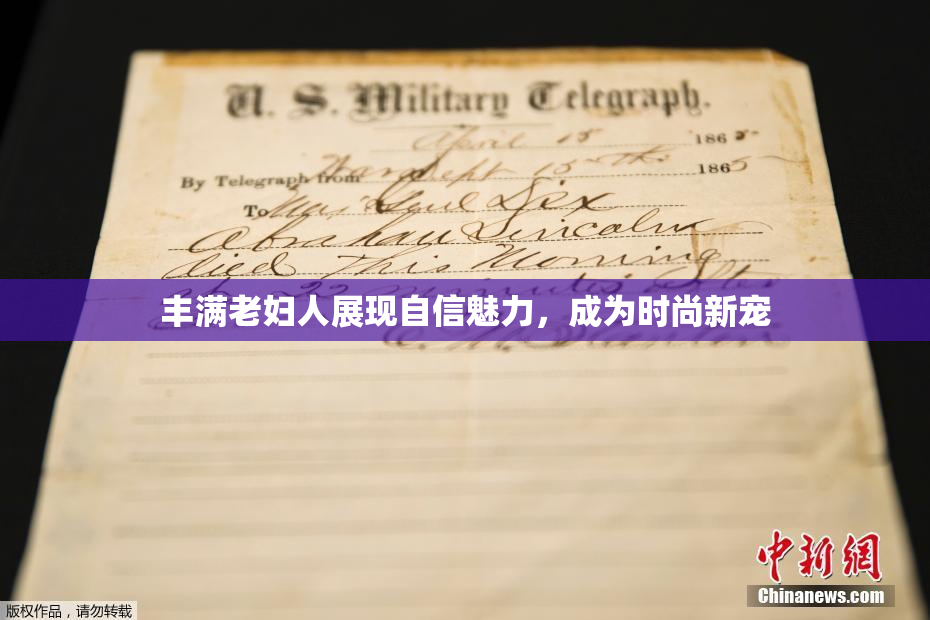 U. S. Military Telegraph.
April 15 1865
By Telegraph from War Dept 15th 1865
To Maj Genl Dix
Abraham Lincoln
died This Morning
at 22 minutes after
丰满老妇人展现自信魅力，成为时尚新宠
E. M. Stanton
中新網
Chinanews.com
版权作品，请勿转载